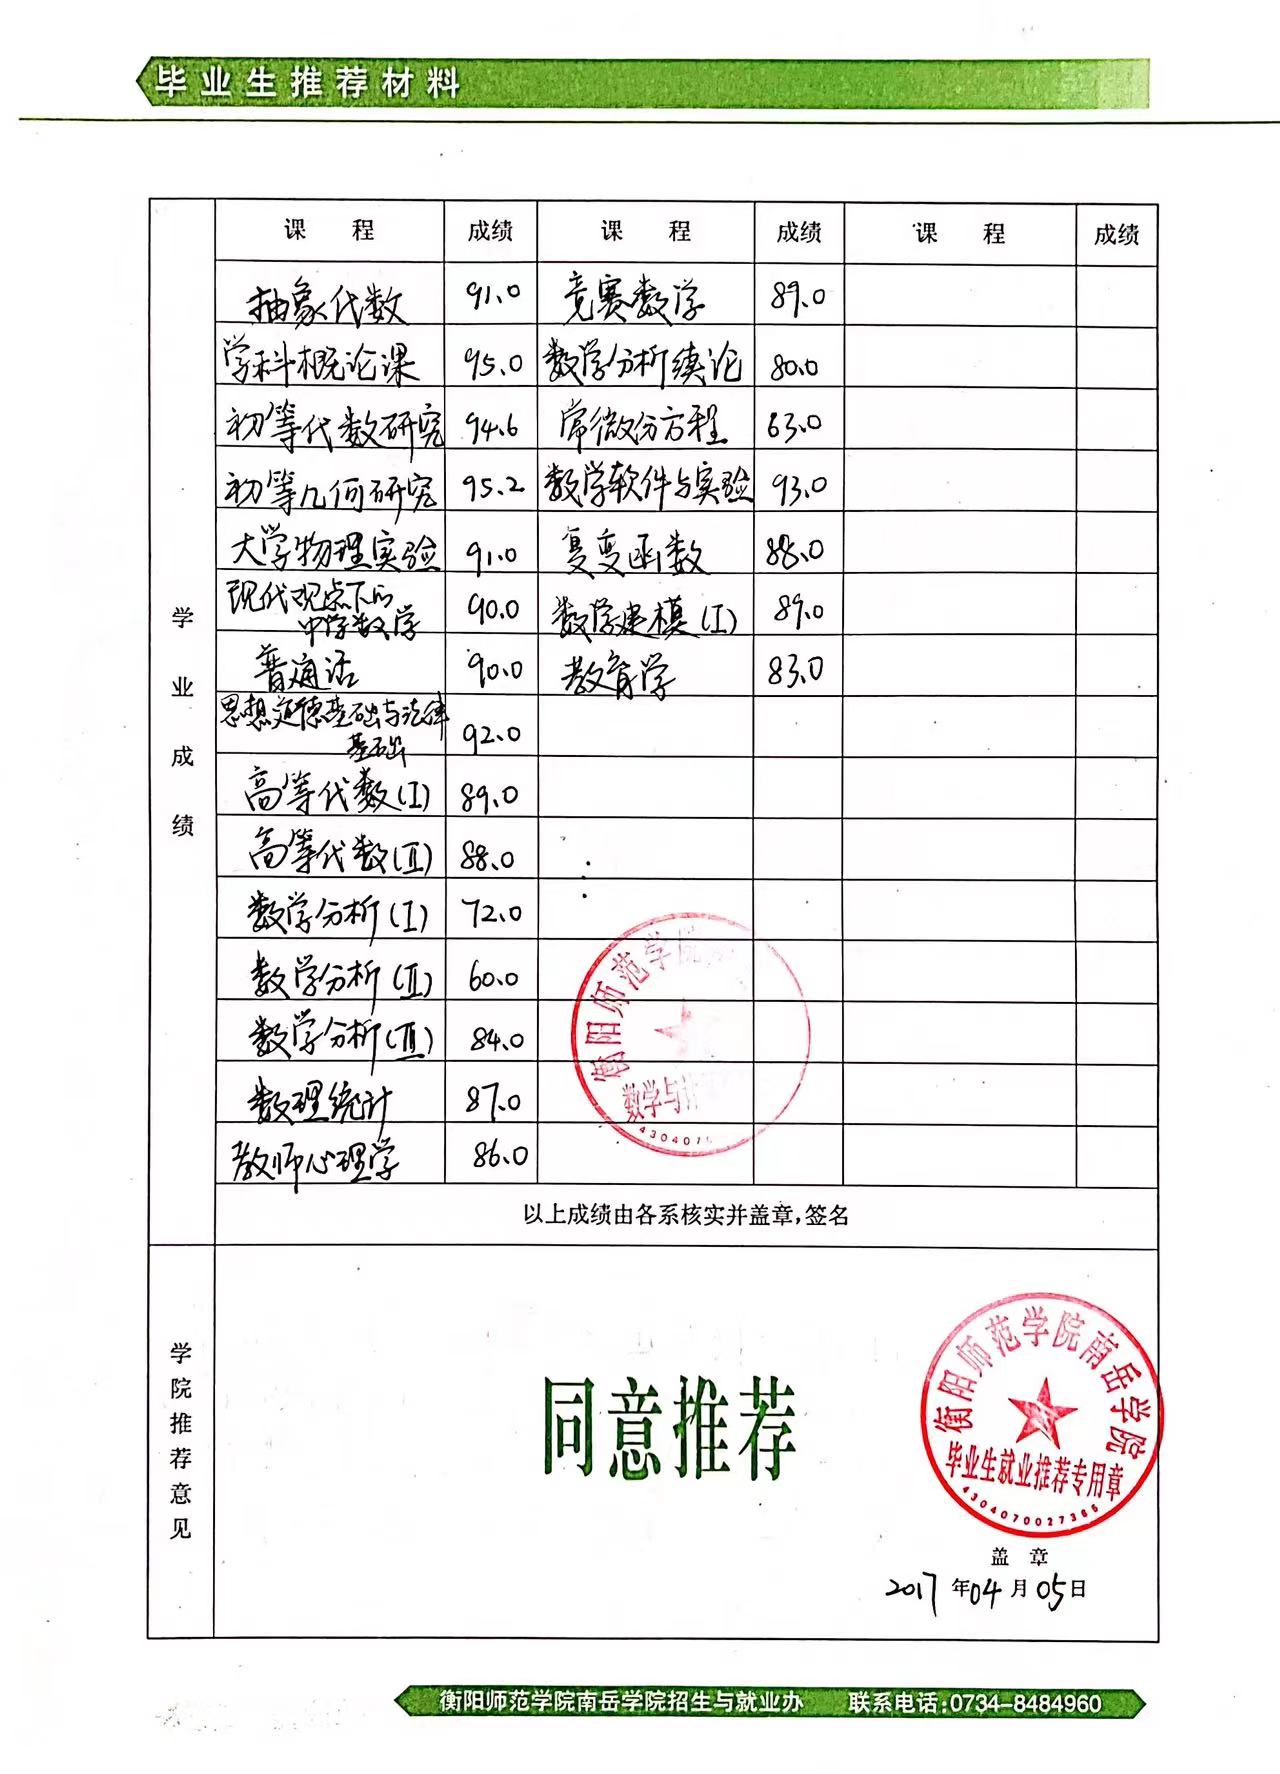 毕业生推荐材料
课 程 成绩 课 程 成绩 课 程 成绩
抽象代数 91.0 竞赛数学 89.0
学科概论课 95.0 数学分析续论 80.0
初等代数研究 94.6 常微分方程 63.0
初等几何研究 95.2 数学软件与实验 93.0
大学物理实验 91.0 复变函数 88.0
现代观点下的
中学数学 90.0 数学建模(I) 89.0
普通话 90.0 教育学 83.0
思想道德基础与法律
基础 92.0
高等代数(I) 89.0
高等代数(II) 88.0
数学分析(I) 72.0
数学分析(II) 60.0
数学分析(III) 84.0
数理统计 87.0
教师心理学 86.0
学业成绩
衡阳师范学院
数学与计
4304075
以上成绩由各系核实并盖章,签名
学院推荐意见
同意推荐
衡阳师范学院南岳学院
毕业生就业推荐专用章
4304070027365
盖 章
2017年04月05日
衡阳师范学院南岳学院招生与就业办 联系电话:0734-8484960